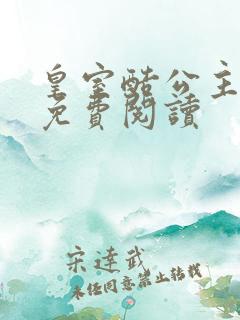 皇室酷公主
免費閱讀
宋達武
未经同意禁止转载